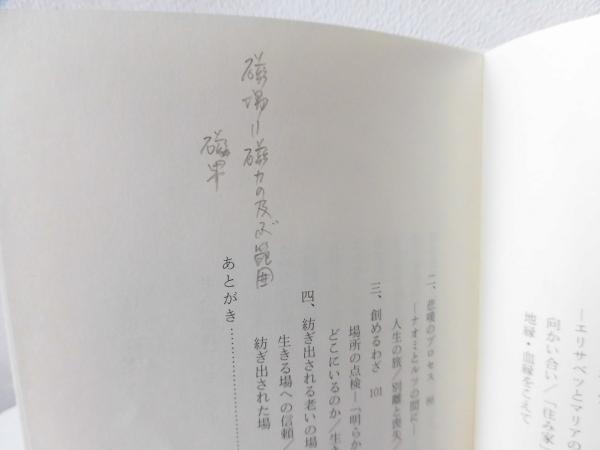 ―エリサベツとマリアの
向かい合い／「住み家」
地縁・血縁をこえて
二、悲嘆のプロセス
―ナオミとルツの間に―
人生の旅／別離と喪失／
三、創めるわざ 101
場所の点検―「明らか
どこにいるのか／生き
四、紡ぎ出される老いの場
生きる場への信頼／
紡ぎ出された場
あとがき……………
磁場＝磁力の及ぶ範囲
磁界